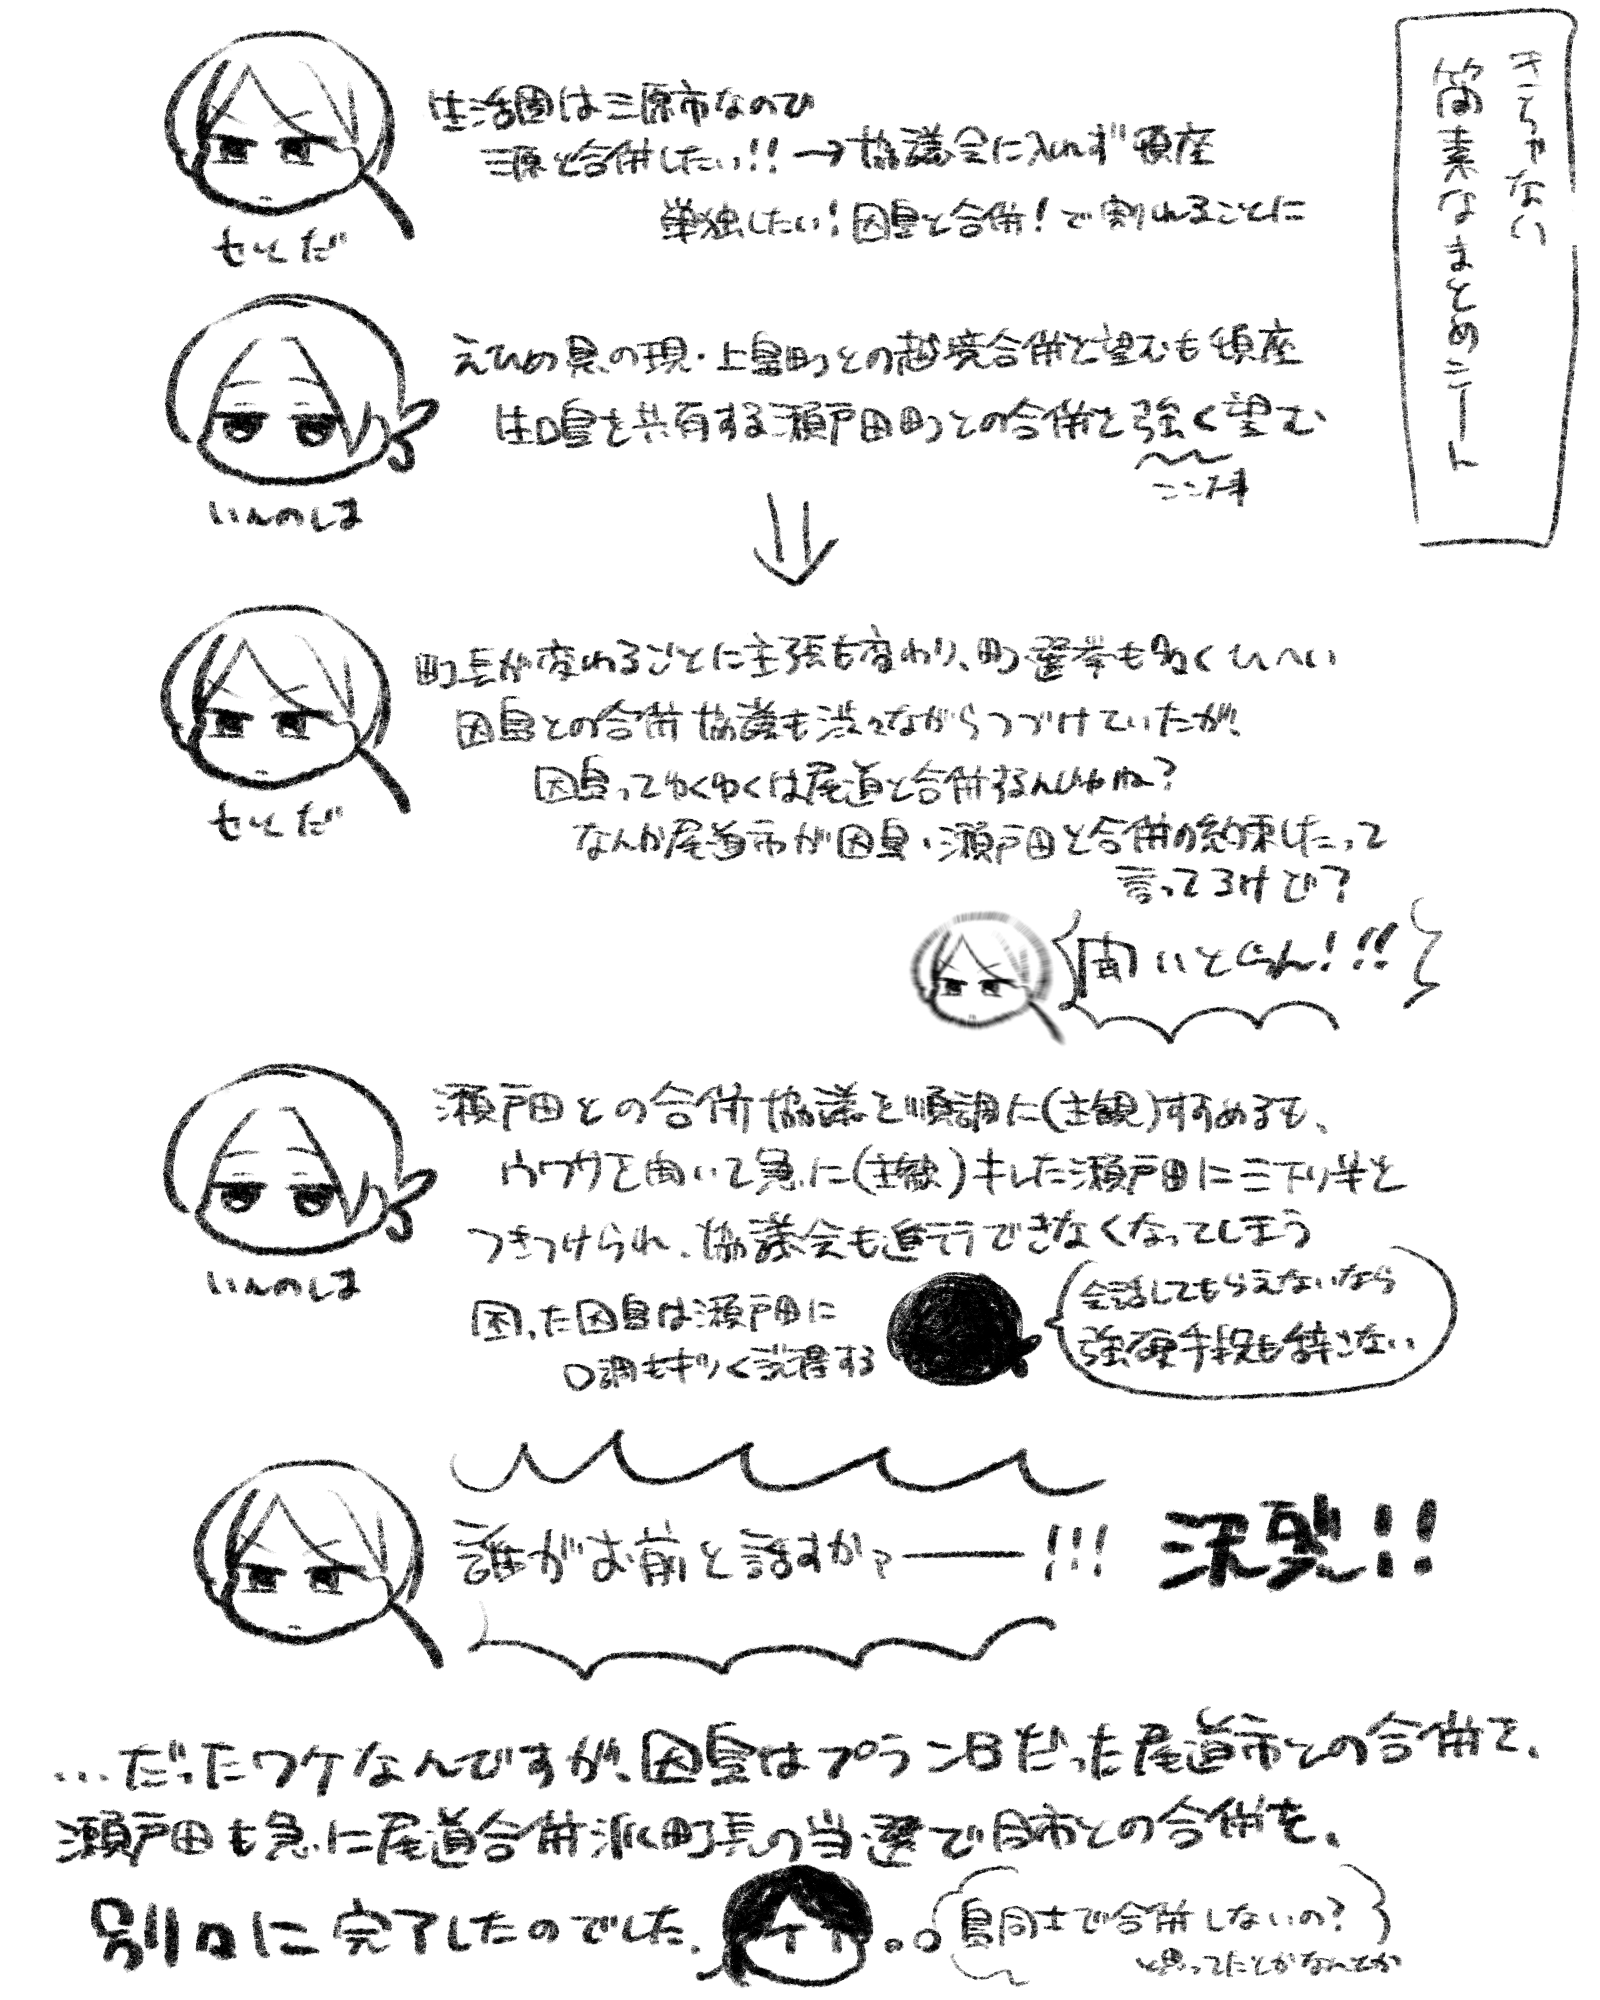 きこらやない
簡素なまとめシート
生活圏は三原市なので
三原と合併したい!!→協議会に入れず頓座
単独したい!因島と合併!で割れることに
せとだ
えひめ県の現・上島町との越境合併を望むも頓座
生口島を共有する瀬戸田町との合併を強く望む
ここ大事
いんのしま
町長が変わるごとに主張も変わり、町選挙も多くひへい
因島との合併協議も渋りながらつづけていたが、
因島ってゆくゆくは尾道と合併するんじゃね?
なんか尾道市が因島・瀬戸田と合併の約束したって
言ってるけど?
せとだ
聞いとらん!!!
瀬戸田との合併協議を順調に(主観)すすめるも、
ウワサを聞いて急に(主観)キレた瀬戸田に三下り半を
つきつけられ、協議会も進行できなくなってしまう
いんのしま
困った因島は瀬戸田に
口調もギリく説得する
会話してもらえないなら
強硬手段も辞さない
誰がお前と話すかァ――!!!
決裂!!
…だったワケなんですが、因島はプランBだった尾道市との合併を、
瀬戸田も急に尾道合併派町長の当選で同市との合併を、
別々に完了したのでした。
島同士で合併しないの?
と思ってたとかなんとか